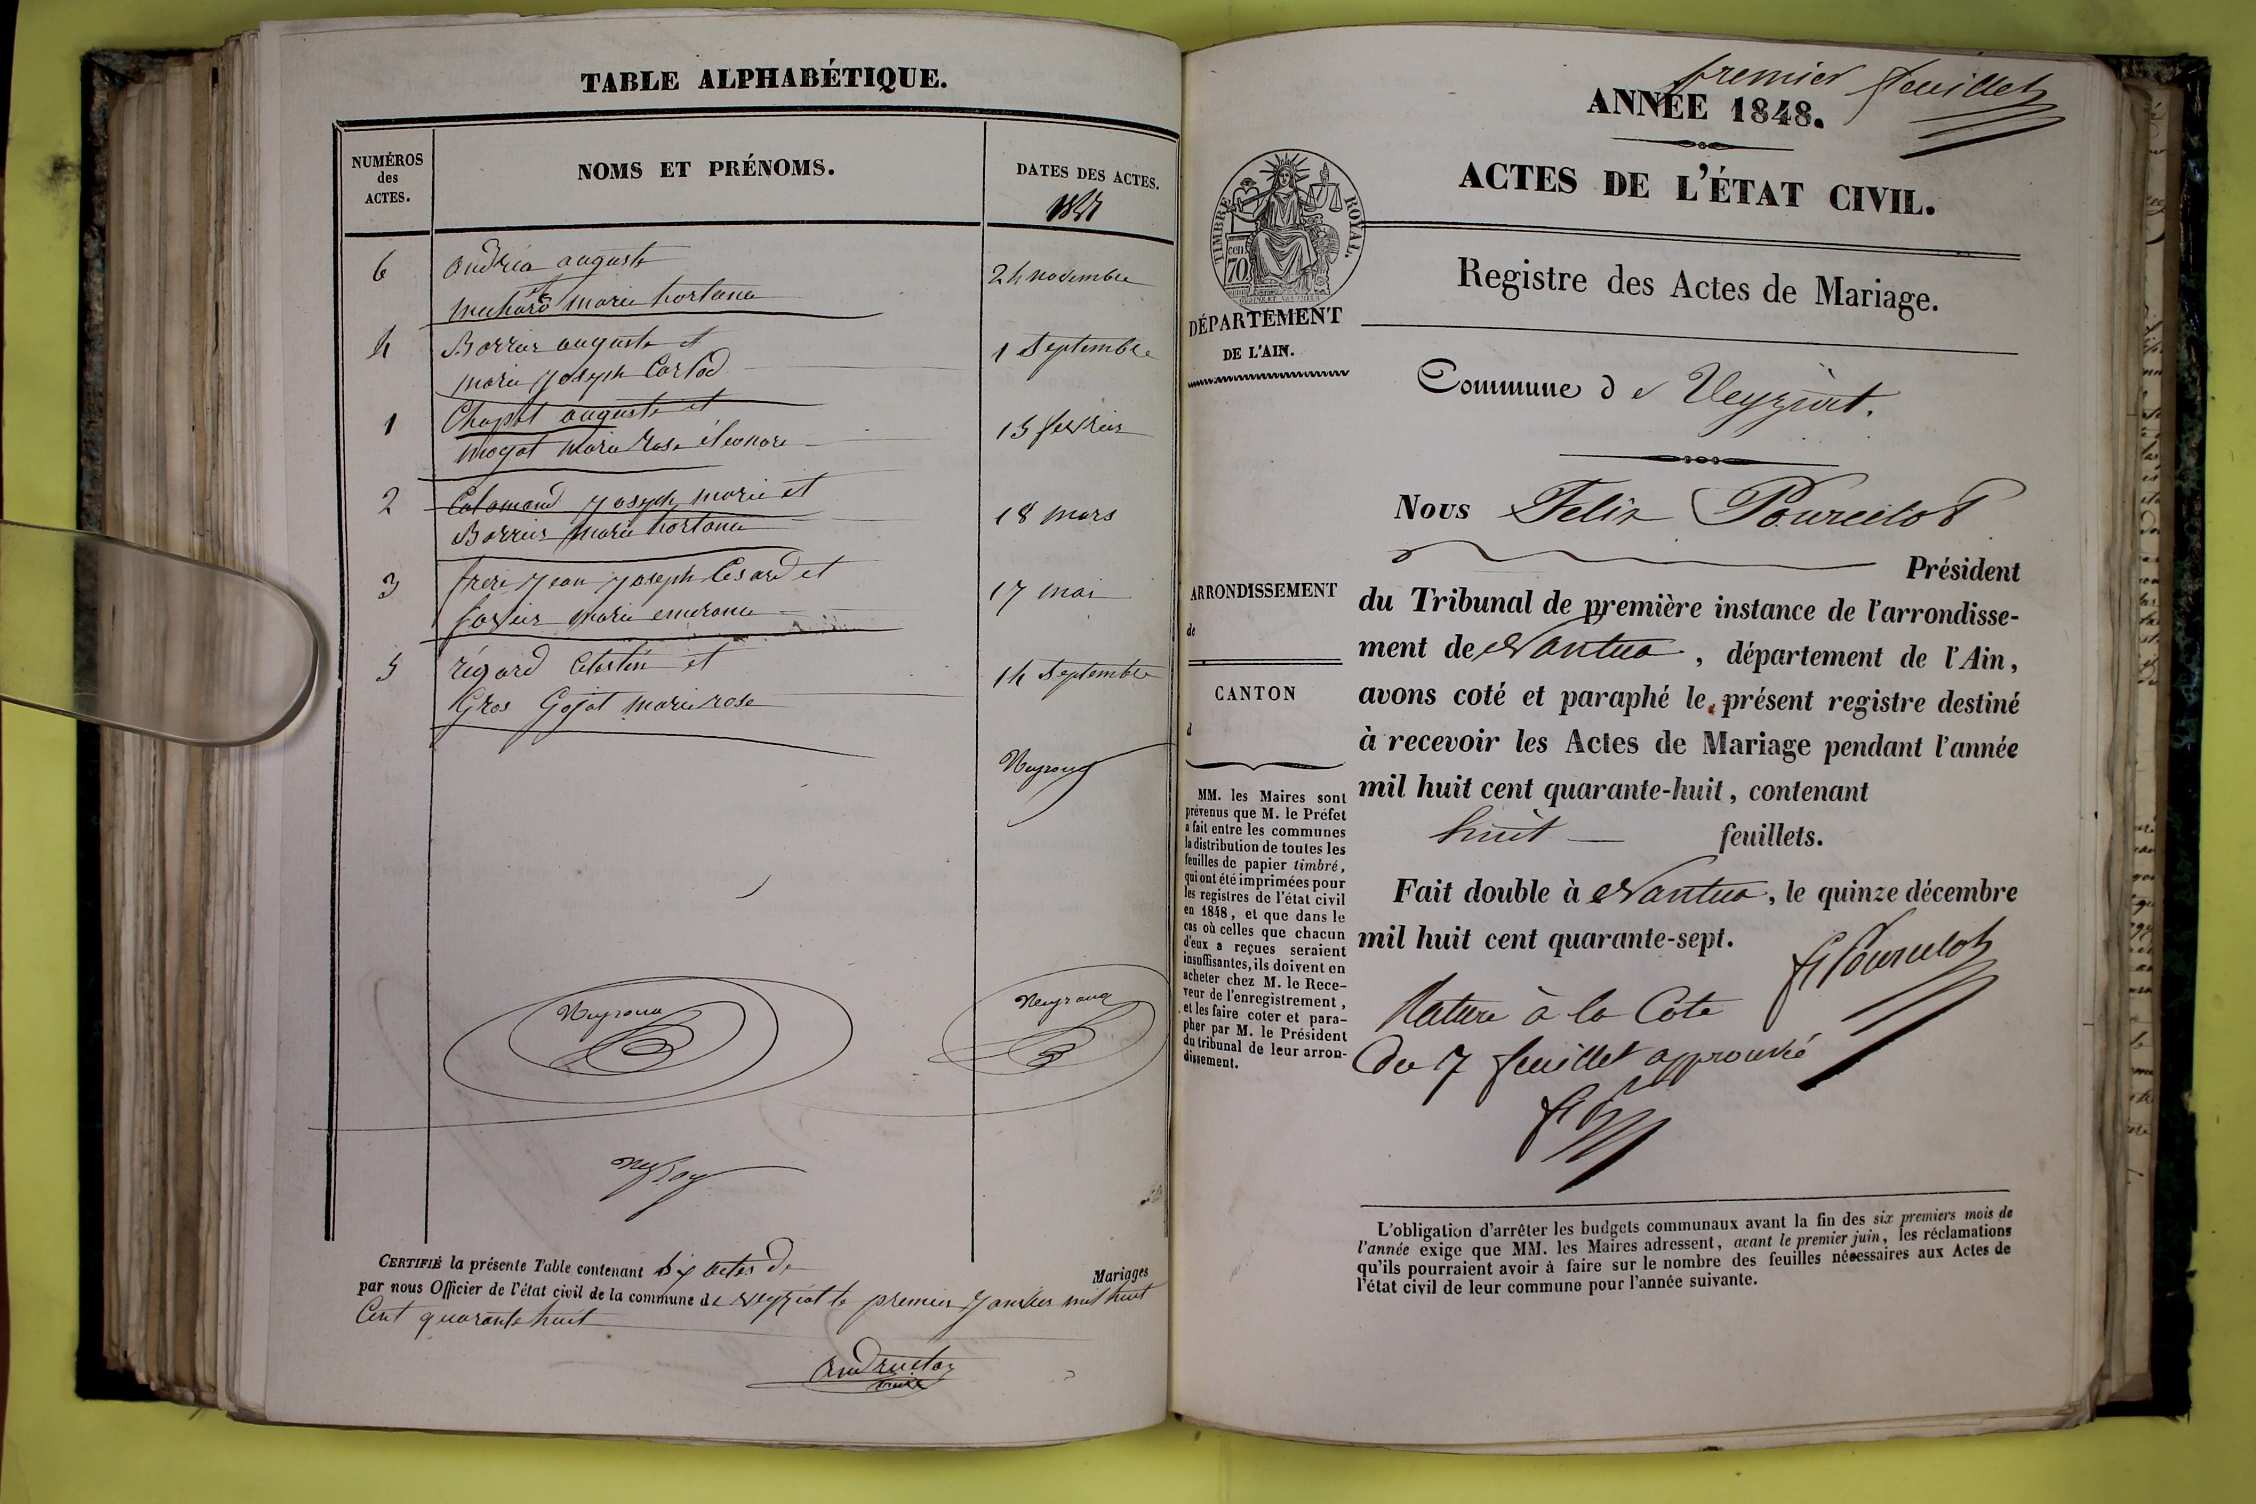 TABLE ALPHABÉTIQUE.
NUMÉROS
des
ACTES.
NOMS ET PRÉNOMS.
DATES DES ACTES.
6
andréa auguste
24 novembre
et
marie hortance
4
Borrier auguste et
1 Septembre
marie joseph Carlod
1
Chapot auguste et
15 fevrier
mogat marie Rose éléonore
2
joseph marie et
18 mars
Borrier marie hortance
3
frere jean joseph Cesard et
17 mai
marie
5
régard Celestin et
14 Septembre
Gros Gojat marie rose
Neyroud
Neyroud
Neyroud
CERTIFIÉ la présente Table contenant Six actes de Mariages
par nous Officier de l'état civil de la commune de veyziat le premier janvier mil huit
Cent quarante huit
premier feuillet
ANNÉE 1848.
ACTES DE L'ÉTAT CIVIL.
TIMBRE ROYAL.
cen
70
Registre des Actes de Mariage.
DÉPARTEMENT
DE L'AIN.
Commune de Veyziat.
Nous Felix Pourcelot
Président
du Tribunal de première instance de l'arrondisse-
ment de Nantua, département de l'Ain,
avons coté et paraphé le présent registre destiné
à recevoir les Actes de Mariage pendant l'année
mil huit cent quarante-huit, contenant
huit feuillets.
Fait double à Nantua, le quinze décembre
mil huit cent quarante-sept.
F Pourcelot
Rature à la Cote
du 7 feuillet approuvée
ARRONDISSEMENT
de
CANTON
d
MM. les Maires sont
prévenus que M. le Préfet
a fait entre les communes
la distribution de toutes les
feuilles de papier timbré,
qui ont été imprimées pour
les registres de l'état civil
en 1848, et que dans le
cas où celles que chacun
d'eux a reçues seraient
insuffisantes, ils doivent en
acheter chez M. le Rece-
veur de l'enregistrement,
et les faire coter et para-
pher par M. le Président
du tribunal de leur arron-
dissement.
L'obligation d'arrêter les budgets communaux avant la fin des six premiers mois de
l'année exige que MM. les Maires adressent, avant le premier juin, les réclamations
qu'ils pourraient avoir à faire sur le nombre des feuilles nécessaires aux Actes de
l'état civil de leur commune pour l'année suivante.